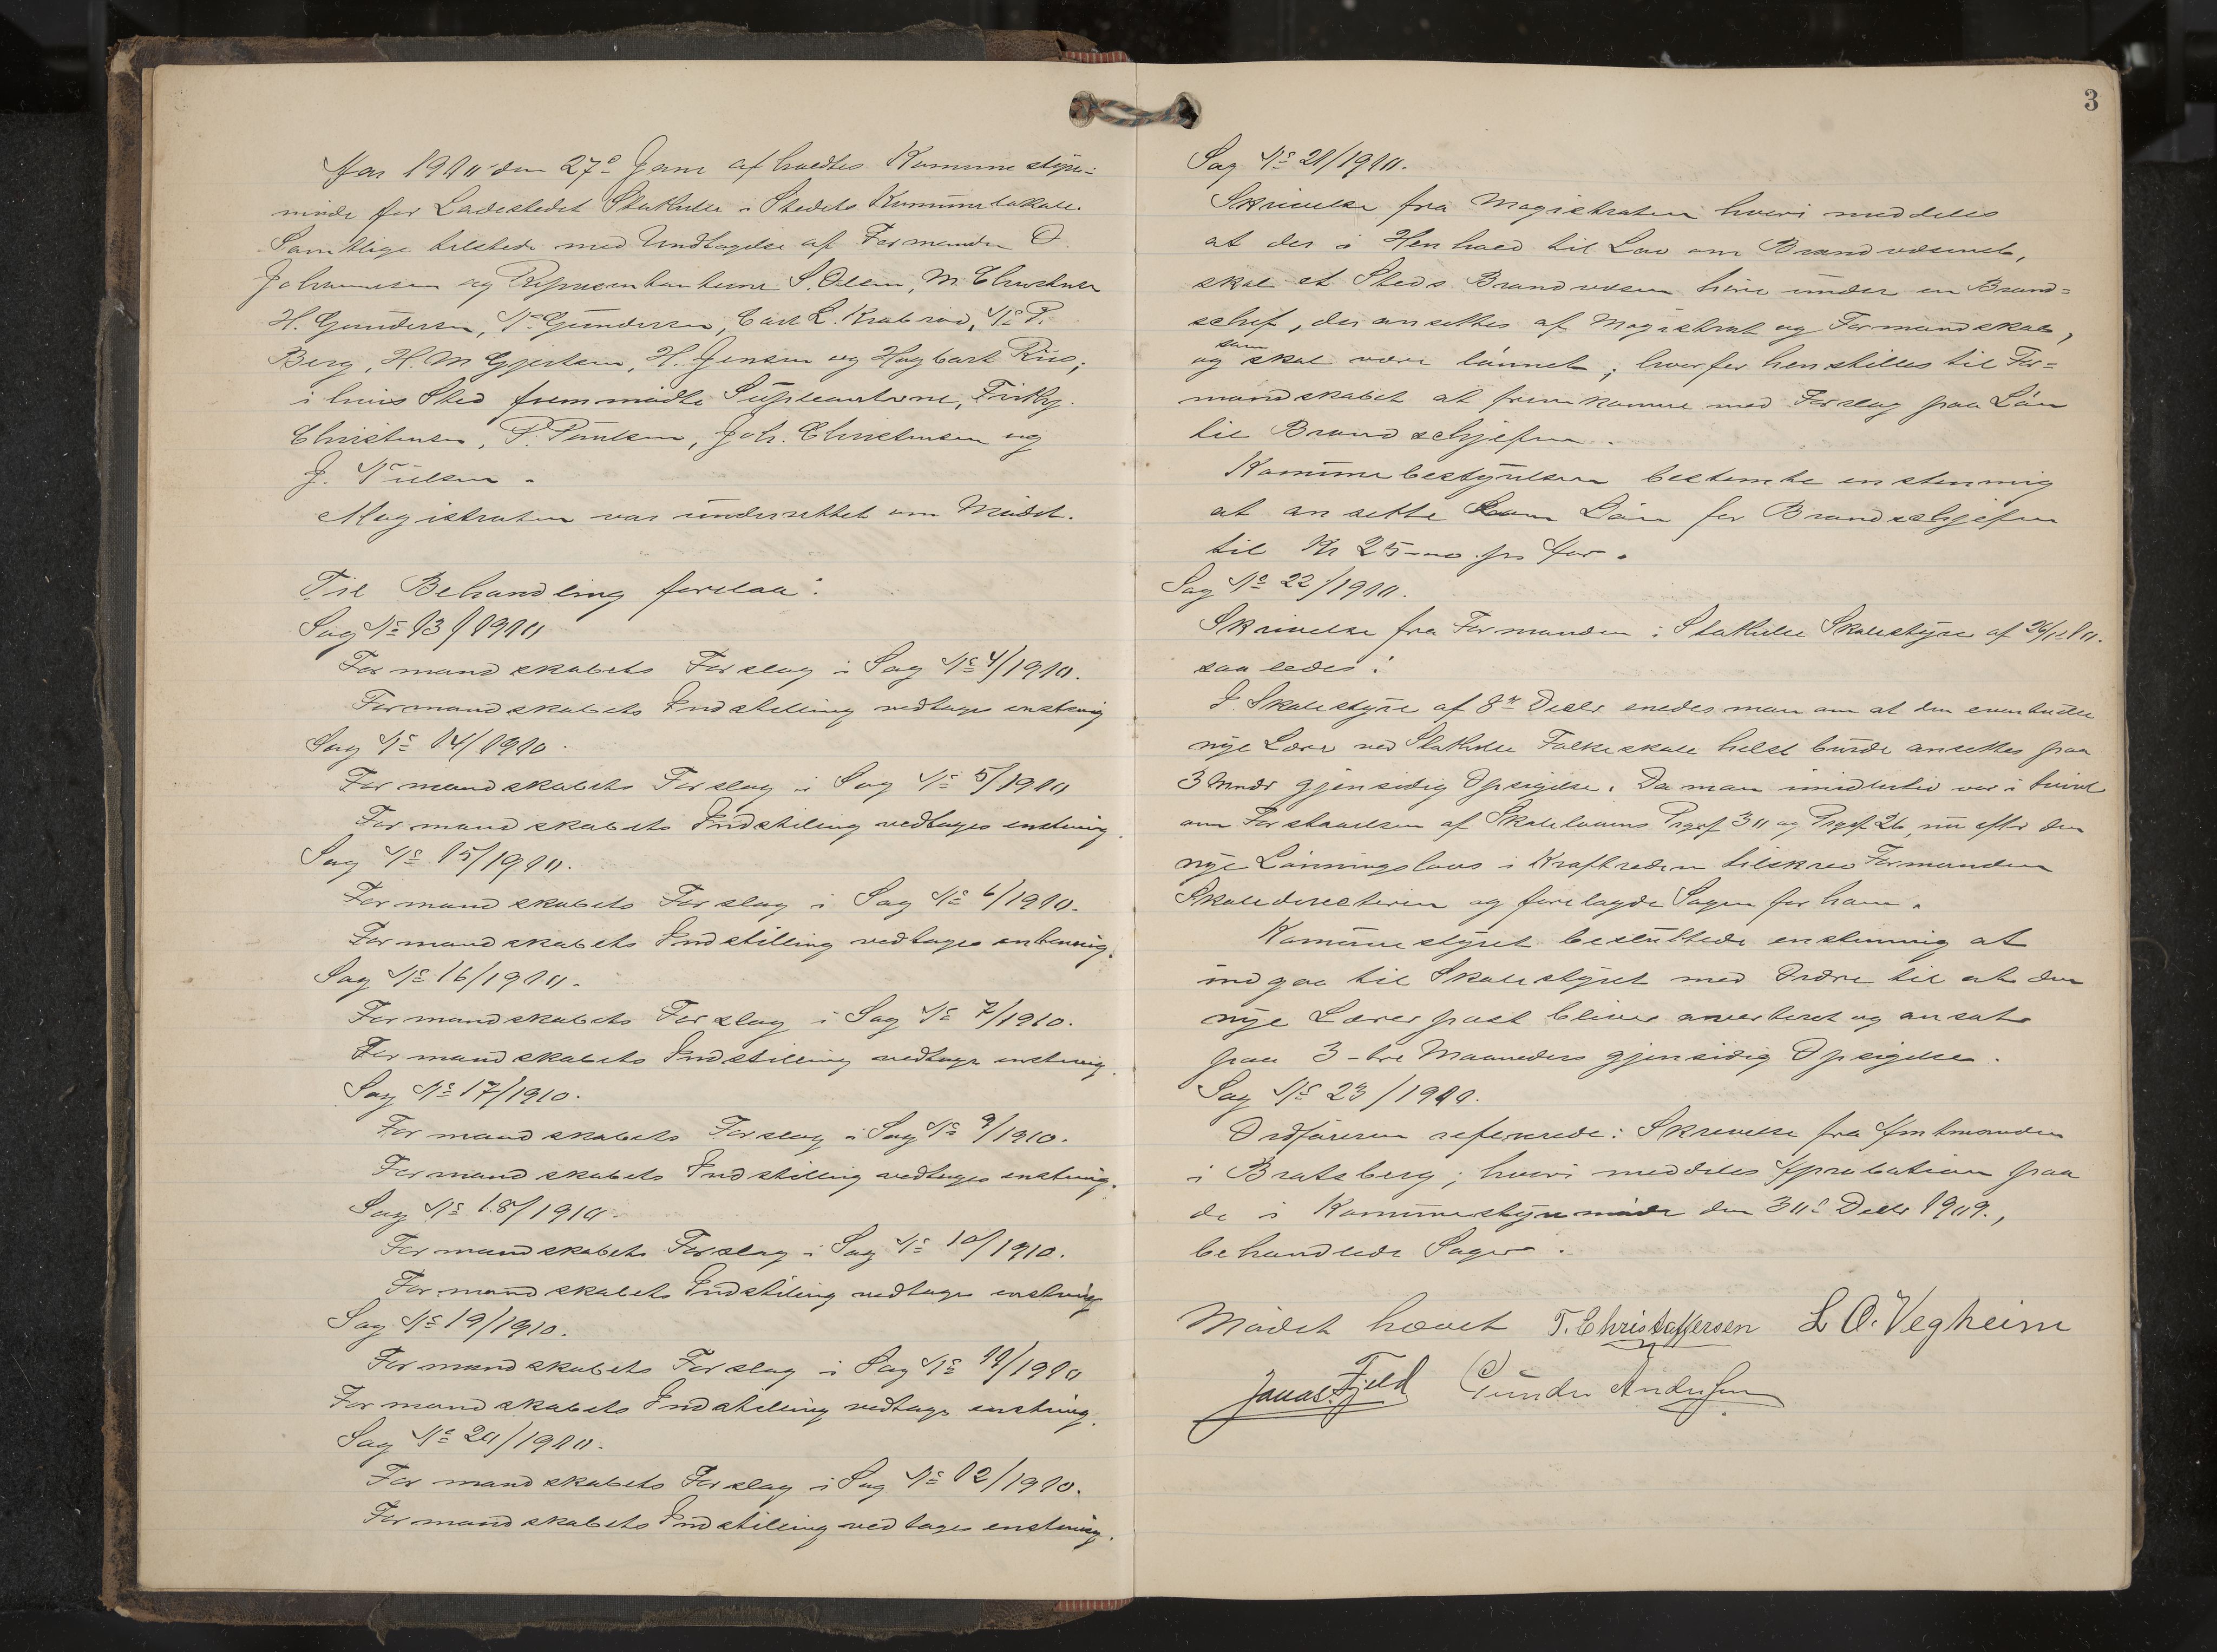 Aar 1910 den 27de Januar afholdtes Kommunestyre-
møde for Ladestedet Stathelle i Stedets Kommunelokale.
Samtlige tilstede med Undtagelse af Formanden O.
Johannesen og Repræsentanterne S. Olsen, M. Christensen
H. Gundersen, N. Gundersen, Carl L. Krabrød, Ns P.
Berg, H. M Gjertsen, H. Jensen og Hagbart Riis;
i hvis Sted fremmødte Supleanterne,
Christensen, P. Paulsen, Joh. Christensen og
J. Nielsen.
Magistraten var underrettet om Mødet.
Til Behandling forelaa:
Sag No 13/1910
Formandskabets Forslag i Sag No 4/1910.
Formandskabets Indstilling vedtages enstemig
Sag No 14/1910.
Formandskabets Forslag i Sag No 5/1910
Formandskabets Indstilling vedtages enstemig.
Sag No 15/1910.
Formandskabets Forslag i Sag No 6/1910.
Formandskabets Indstilling vedtages enstemig.
Sag No 16/1910.
Formandskabets Forslag i Sag No 7/1910.
Formandskabets Indstilling vedtages enstemig.
Sag No 17/1910.
Formandskabets Forslag i Sag No 9/1910.
Formandskabets Indstilling vedtages enstemig.
Sag No 18/1910.
Formandskabets Forslag i Sag No 10/1910.
Formandskabets Indstilling vedtages enstemig
Sag No 19/1910.
Formandskabets Forslag i Sag No 11/1910
Formandskabets Indstilling vedtages enstemig.
Sag No 20/1910.
Formandskabets Forslag i Sag No 12/1910.
Formandskabets Indstilling vedtages enstemig.
3
Sag No 21/1910.
Skrivelse fra Magistraten hvori meddeles
at der i Henhold til Lov om Brandvæsenet,
skal et Steds Brandvæsen høre under en Brand=
schef, der ansettes af Magistrat og Formandskab,
og som skal være lønnet; hvorfor henstilles til For=
mandskabet at fremkomme med Forslag paa Løn
til Brandschjefen.
Kommunebestyrelsen bestemte enstemmig
at ansette Løn for Brandschjefen
til Kr 25-00 pr Aar.
Sag No 22/1910.
Skrivelse fra Formanden i Stathelle Skolestyre af 26/1-10.
saaledes:
I Skolestyre af 8de Decbr. enedes man om at den eventuelle
nye Lærer ved Stathelle Folkeskole helst burde ansettes paa
3 Mndr gjensidig Opsigelse. Da man imidlertid var i tvivl
om Forstaaelsen af Skolelovens Prgrf 30 og Prgrf 26, nu efter den
nye Lønningslovs i Krafttreden tilskrev Formanden
Skoledirectøren og forelagde Sagen for ham.
Kommunestyret besluttede enstemmig at
indgaa til Skolestyret med Ordre til at den
nye Lærerpost bliver averteret og ansat
paa 3-tre Maaneders gjensidig Opsigelse.
Sag No 23/1910.
Ordføreren refererede: Skrivelse fra Amtmanden
i Bratsberg; hvori meddeles Aprobation paa
de i Kommunestyremøde den 30te Decbr 1909.,
behandlede Sager.
Mødet hævet T. Christoffersen L O. Vegheim
Jonas Fjeld Gunder Andersen